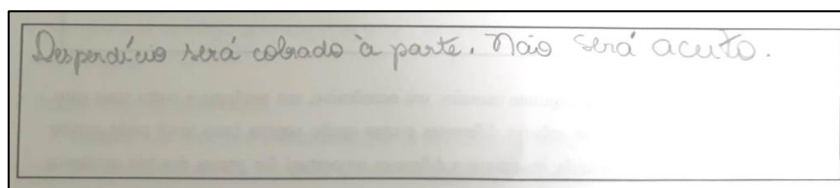 Desperdício será cobrado à parte. Não será aceito.